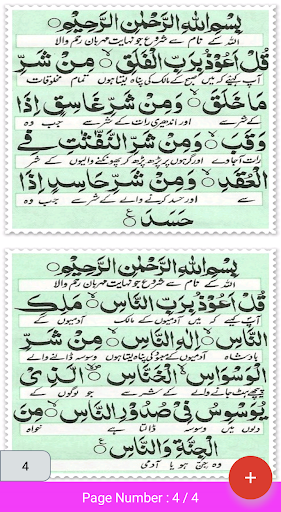 بِسْمِ اللهِ الرَّحْمٰنِ الرَّحِيْمِ
اللہ کے نام سے شروع جو نہایت مہربان رحم والا
قُلْ اَعُوْذُ بِرَبِّ الْفَلَقِ ۙ مِنْ شَرِّ
آپ کہیئے کہ میں صبح کے مالک کی پناہ لیتا ہوں تمام مخلوقات
مَا خَلَقَ ۙ وَمِنْ شَرِّ غَاسِقٍ اِذَا
کے شر سے اور اندھیری رات کے شر سے جب وہ
وَقَبَ ۙ وَمِنْ شَرِّ النَّفّٰثٰتِ فِي
رات آجاوے اور گرہوں پر پڑھ پڑھ کر پھونکنے والیوں کے شر
الْعُقَدِ ۙ وَمِنْ شَرِّ حَاسِدٍ اِذَا
سے اور حسد کرنے والے کے شر سے جب وہ
حَسَدَ ع
بِسْمِ اللهِ الرَّحْمٰنِ الرَّحِيْمِ
اللہ کے نام سے شروع جو نہایت مہربان رحم والا
قُلْ اَعُوْذُ بِرَبِّ النَّاسِ ۙ مَلِكِ
آپ کہیے کہ میں آدمیوں کے مالک آدمیوں کے
النَّاسِ ۙ اِلٰهِ النَّاسِ ۙ مِنْ شَرِّ
بادشاہ آدمیوں کے معبود کی پناہ لیتا ہوں وسوسہ ڈالنے والے
الْوَسْوَاسِ ۙ الْخَنَّاسِ ۙ الَّذِيْ
پیچھے ہٹ جانے والے کے شر سے جو لوگوں کے
يُوَسْوِسُ فِيْ صُدُوْرِ النَّاسِ ۙ مِنَ
دلوں میں وسوسہ ڈالتا ہے خواہ
الْجِنَّةِ وَالنَّاسِ ع
وہ جن ہو یا آدمی
4
+
Page Number : 4 / 4